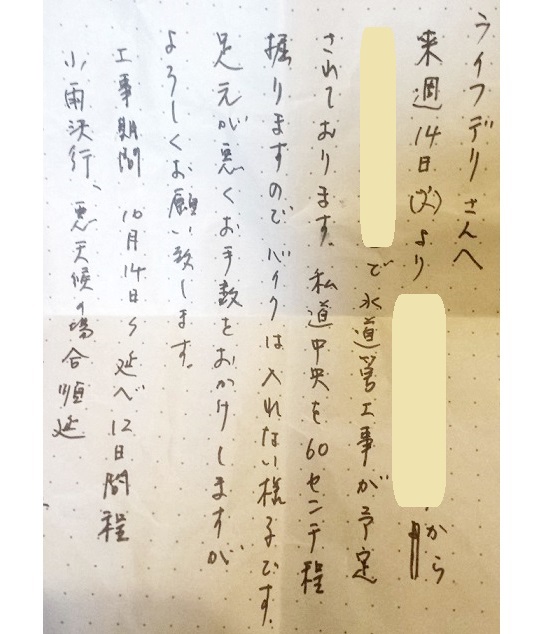 ライフデリさんへ
来週14日(火)より から
で水道管工事が予定
されております。私道中央を60センチ程
掘りますのでバイクは入れない様子です。
足元が悪くお手数をおかけしますが
よろしくお願い致します。
工事期間 10月14日〜延べ12日間程
小雨決行、悪天候の場合順延